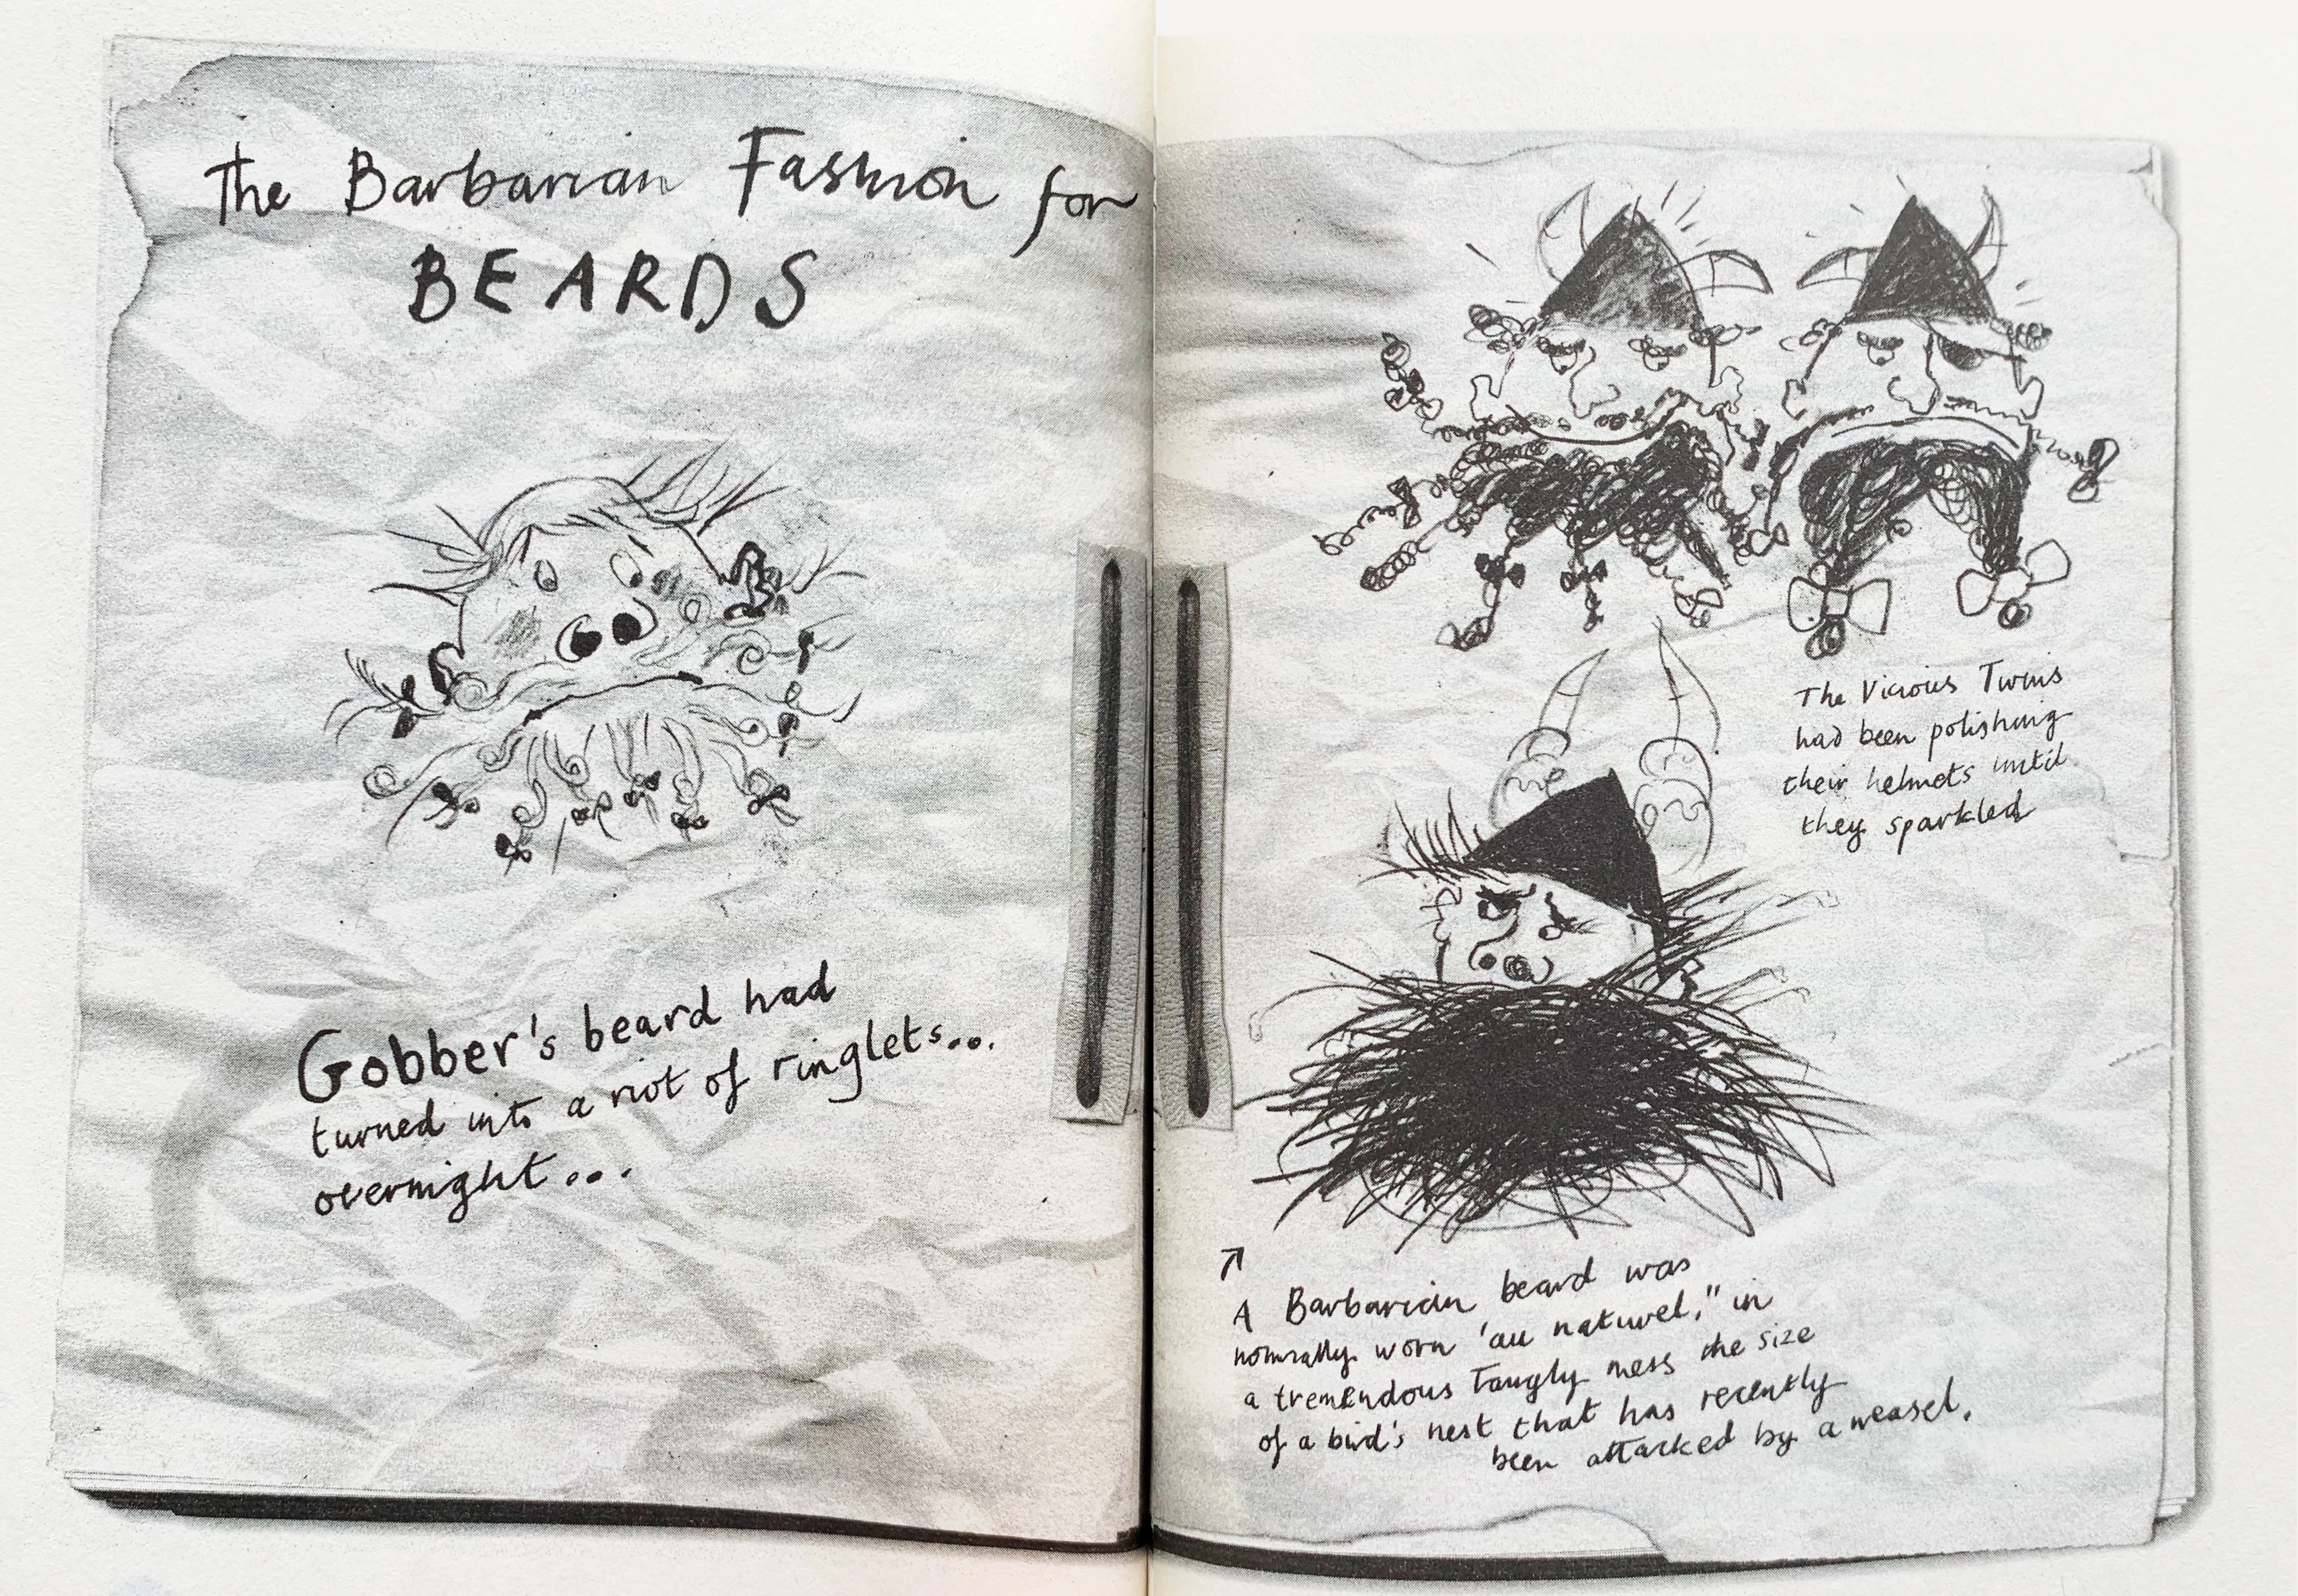 The Barbarian Fashion for
BEARDS
Gobber's beard had
turned into a riot of ringlets...
overnight...
The Vicious Twins
had been polishing
their helmets until
they sparkled
A Barbarian beard was
normally worn 'au naturel," in
a tremendous Tangly mess the size
of a bird's nest that has recently
been attacked by a weasel.